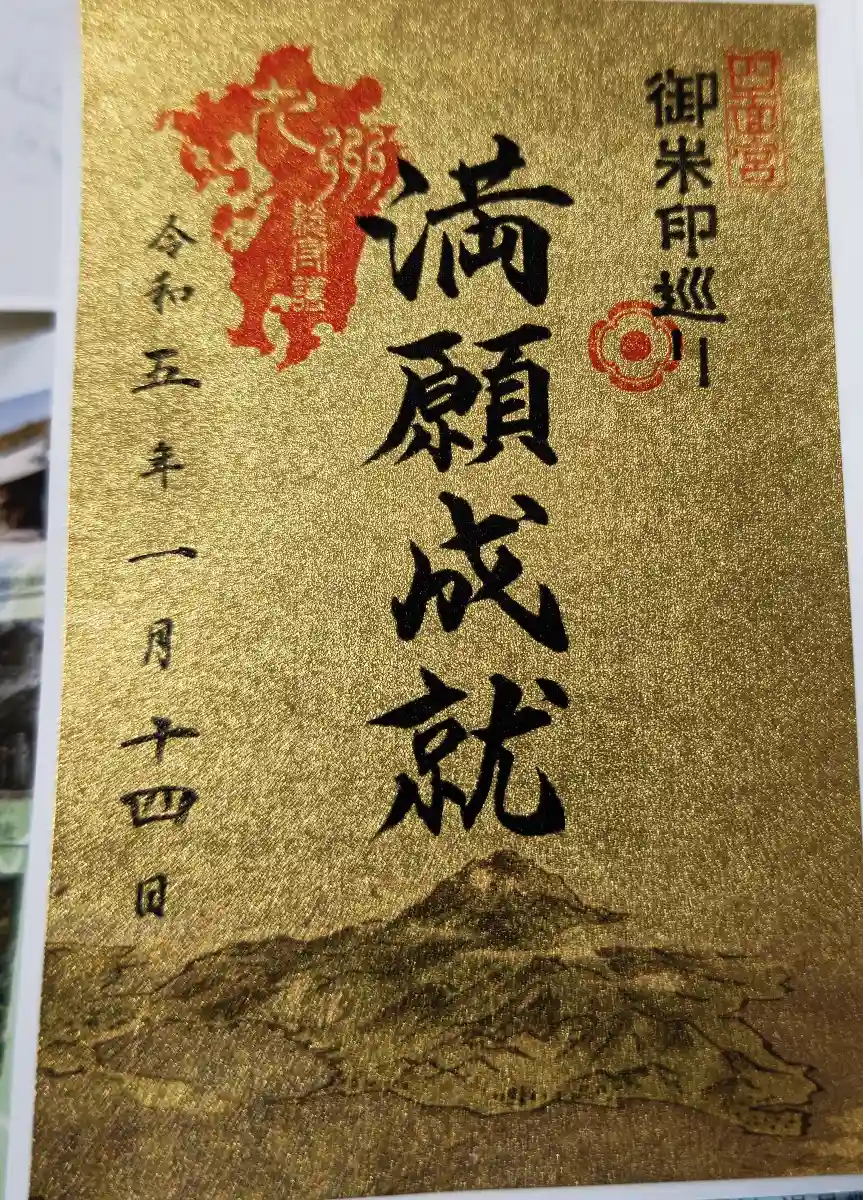 四面宮
御朱印巡り
満願成就
令和五年一月十四日